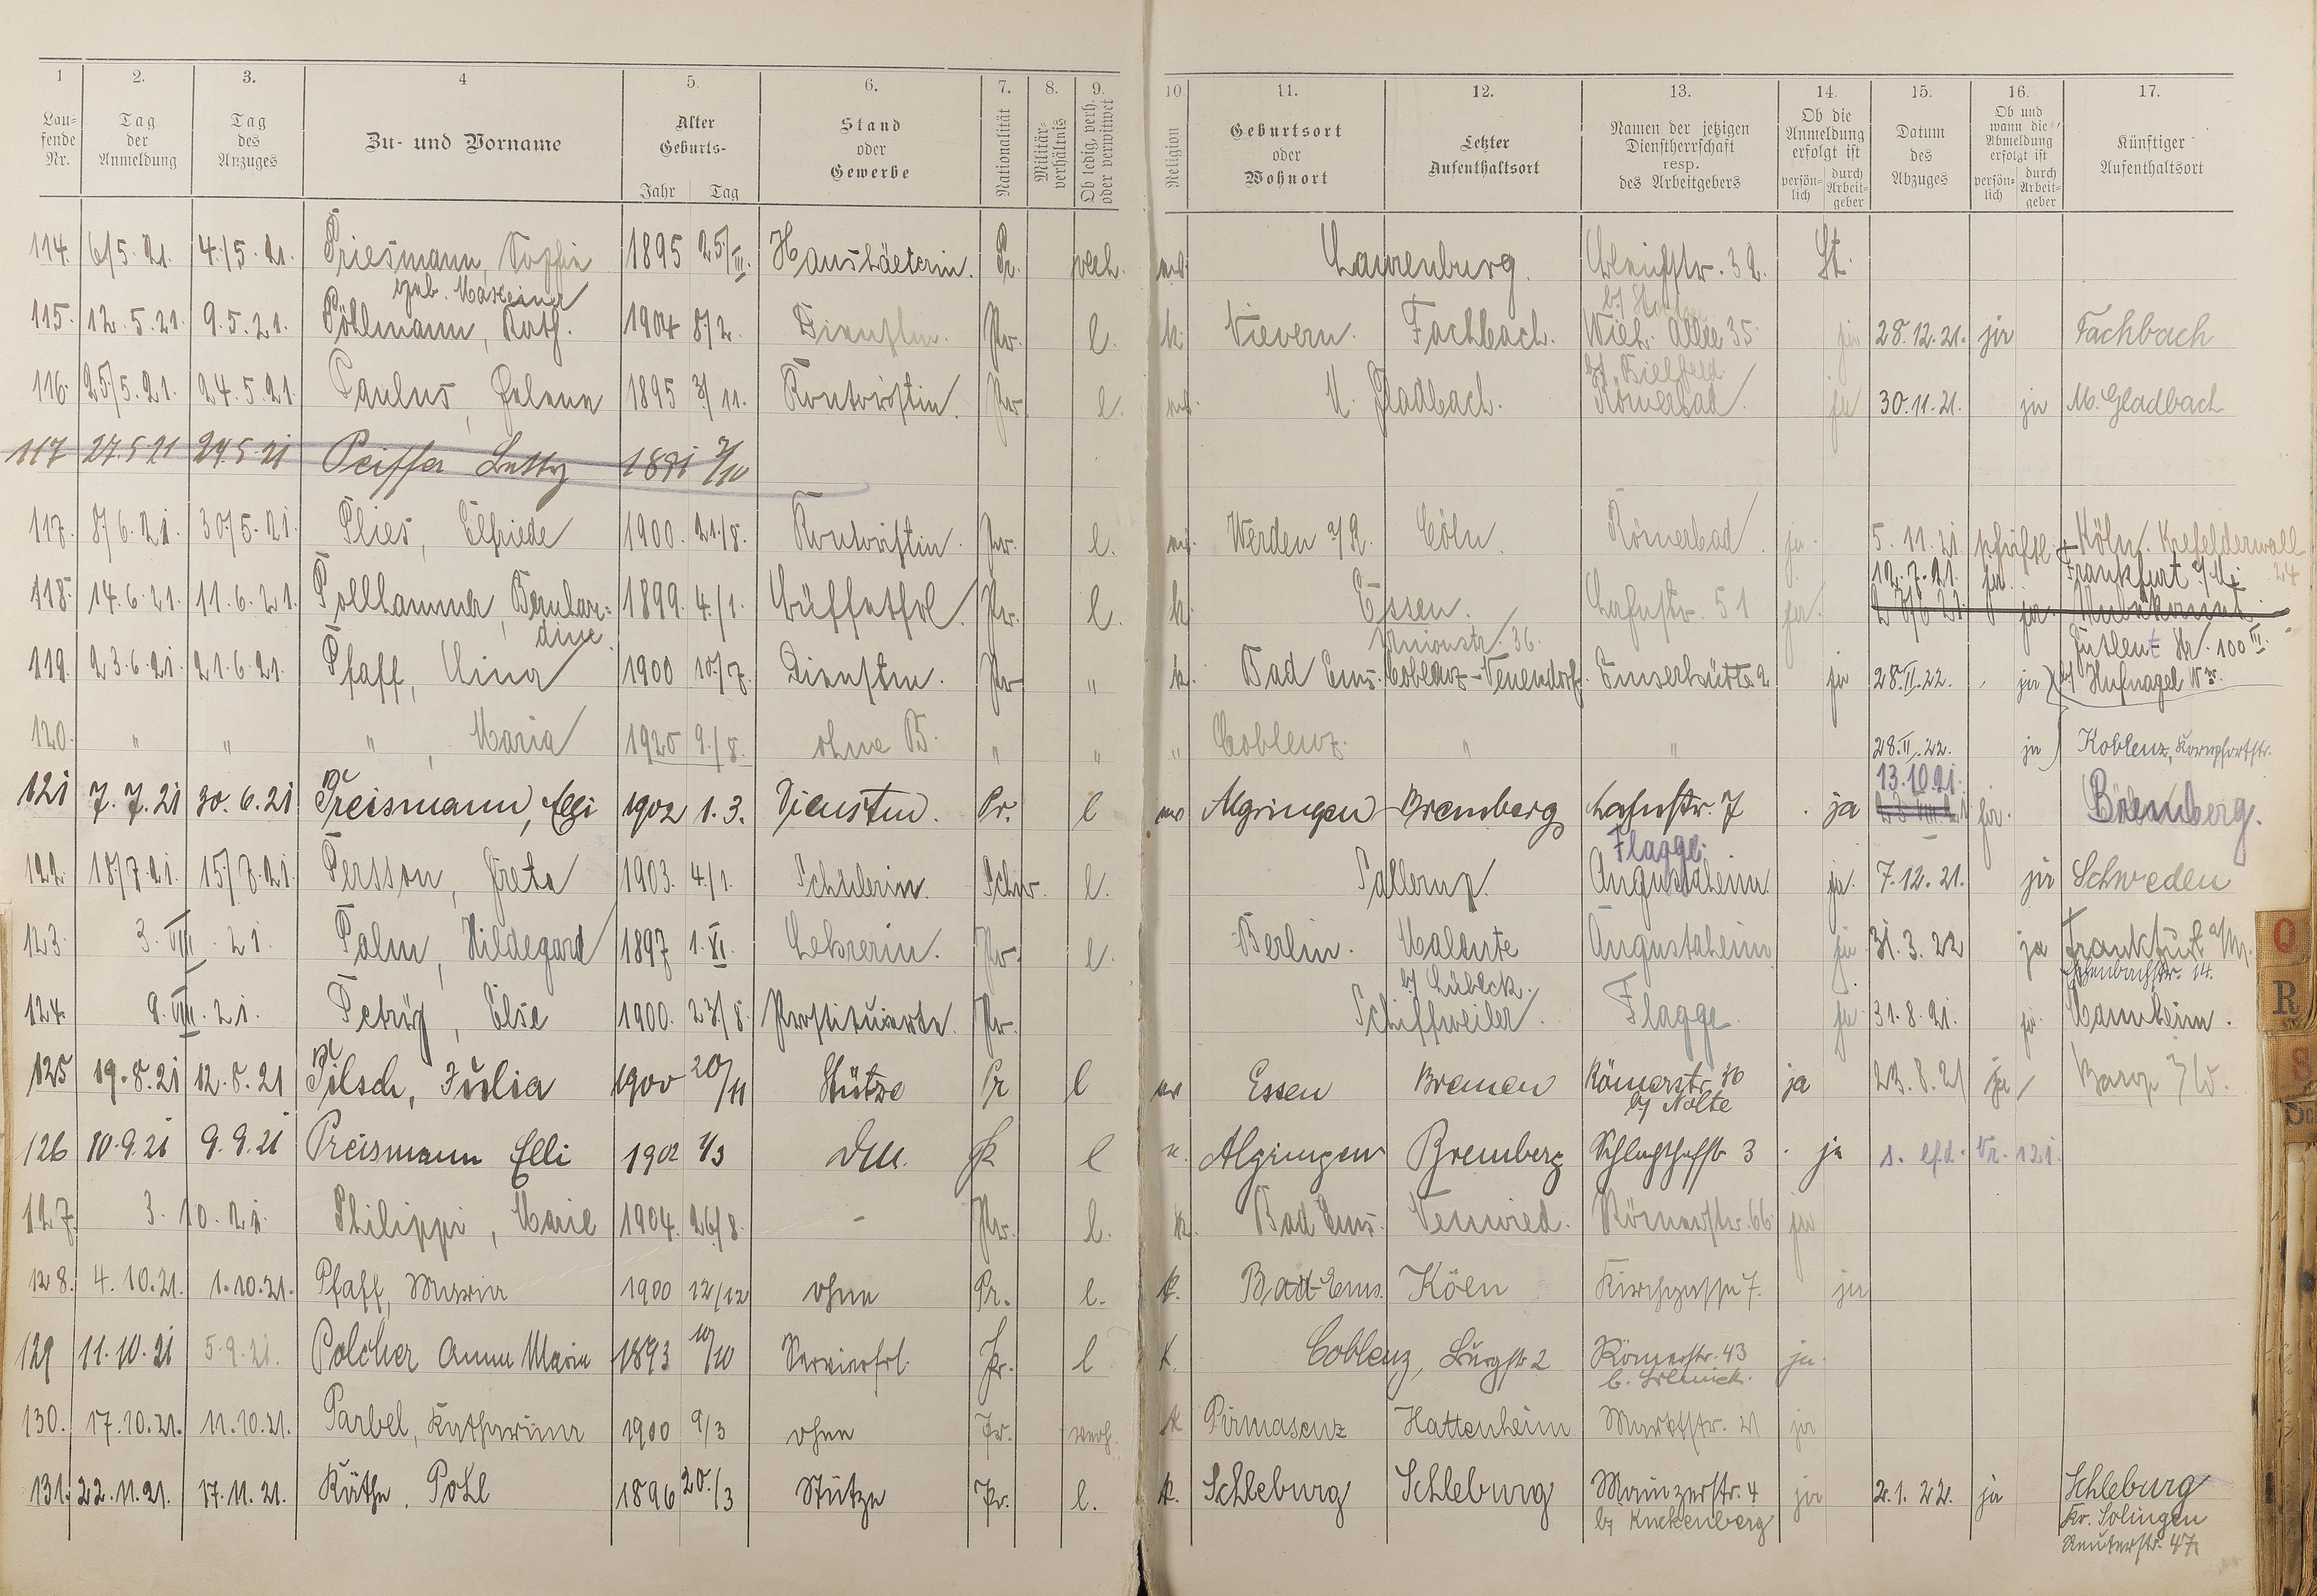 1 2. 3. 4 5. 6. 7. 8. 9. 10 11. 12. 13. 14. 15. 16. 17.
Lau=fende Nr. Tag der Anmeldung Tag des Anzuges Zu- und Vorname Alter Geburts- Jahr Tag Stand oder Gewerbe Nationalität Militär-verhältnis Ob ledig, verh. oder verwitwet Religion Geburtsort oder Wohnort Letzter Aufenthaltsort Namen der jetzigen Dienstherrschaft resp. des Arbeitgebers Ob die Anmeldung erfolgt ist persön=lich durch Arbeit-geber Datum des Abzuges Ob und wann die Abmeldung erfolgt ist persön=lich durch Arbeit-geber Künftiger Aufenthaltsort
114. 6/5. 21. 4./5. 21. Priesmann, Sophie 1895 25/III. Haushälterin. Pr. verh. Laurenburg. 32. St.
geb.
115. 12. 5. 21. 9. 5. 21. Pöhlmann, Kath. 1904 8/2. Dienstm. Pr. l. k. Nievern. Fachbach. Wilh. Allee 35 ja 28.12.21. ja Fachbach
116. 25/5. 21. 24. 5. 21. Paulus, Helene 1895 3/11. Kontoristin. Pr. l. M. Gladbach. Römerbad. ja 30.11.21. ja M. Gladbach
117 27.5 21 24.5.21 Peiffer Betty 1891 2/10
117. 8/6. 21. 30/5. 21. Plies, Elfriede 1900. 21./8. Kontoristin. Pr. l. Werden a/R. Cöln. Römerbad. ja. 5. 11. 21 Köln. Krefelderwall 24
12. 7. 21. Frankfurt a/M.
118. 14. 6. 21. 11. 6. 21. Pollhammer, Bernhar=dine. 1899. 4./1. Büffetfrl. Pr. l. k. Essen. Lahnstr. 51 ja. ja. Unbekannt.
Unionstr. 36. 100 III.
119. 23. 6. 21. 21. 6. 21. Pfaff, Mina 1900 10./7. Dienstm. Pr. " k. Bad Ems. Coblenz-Neuendorf. Emserhütte 2 ja 28.II.22. ja b/ Hufnagel
120. " " ", Maria 1920 9./8. ohne B. " " " Coblenz. " " 28.II.22. ja Koblenz, Kornpfortstr.
13.10.21.
121 7. 7. 21 30. 6. 21 Preismann, Elli 1902 1. 3. Dienstm. Pr. l Algringen Bremberg Lahnstr. 7 ja ja. Bremberg.
Flagge.
122. 18/7. 21. 15/7. 21. Persson, Greta 1903. 4./1. Schülerin. Schw. l. Augustaheim ja. 7.12.21. ja Schweden
123. 3. VIII. 21. Palm, Hildegard 1897 1. XI. Lehrerin. Pr. l. Berlin. Malente Augustaheim ja. 31. 3. 22 ja Frankfurt a/M.
b/ Lübeck. 14.
124. 9. VIII. 21. Petry, Else 1900. 23./8. Prostituierte. Pr. Schiffweiler. Flagge. ja 31.8.21. ja. Mannheim.
125 19. 8. 21 12. 8. 21 Pilsch, Julia 1900 20/11 Stütze Pr l Essen Bremen Römerstr. 36 ja 23.8.21 ja
b/ Nolte
126 10.9.21 9.9.21 Preismann Elli 1902 1/3 Pr l Algringen Bremberg Schlachthofstr 3 ja s. lfd. Nr. 121.
127. 3. 10. 21. Philippi, Marie 1904. 26/8. - Pr. l. k. Bad Ems. Neuwied. Römerstr. 66 ja
128. 4. 10. 21. 1. 10. 21. Pfaff, Maria 1900 12/12 ohne Pr. l. k. Bad-Ems. Köln Kirchgasse 7. ja
129 11. 10. 21 5. 9. 21. Polcher Anna Maria 1893 10/10 Servierfrl. Pr. l k. Coblenz, Burgstr 2 Römerstr. 43 ja.
130. 17.10.21. 11.10.21. Parbel, Katharina 1900 9/3 ohne Pr. verh. k Pirmasenz Hattenheim Marktstr. 21 ja
131. 22.11.21. 17.11.21. Käthe. Pohl 1896 20./3 Stütze Pr. l. k. Schleburg Schleburg Mainzerstr. 4 ja 2. 1. 22. ja Schleburg
b/ Kuckenberg Kr. Solingen
47
Q
R
S